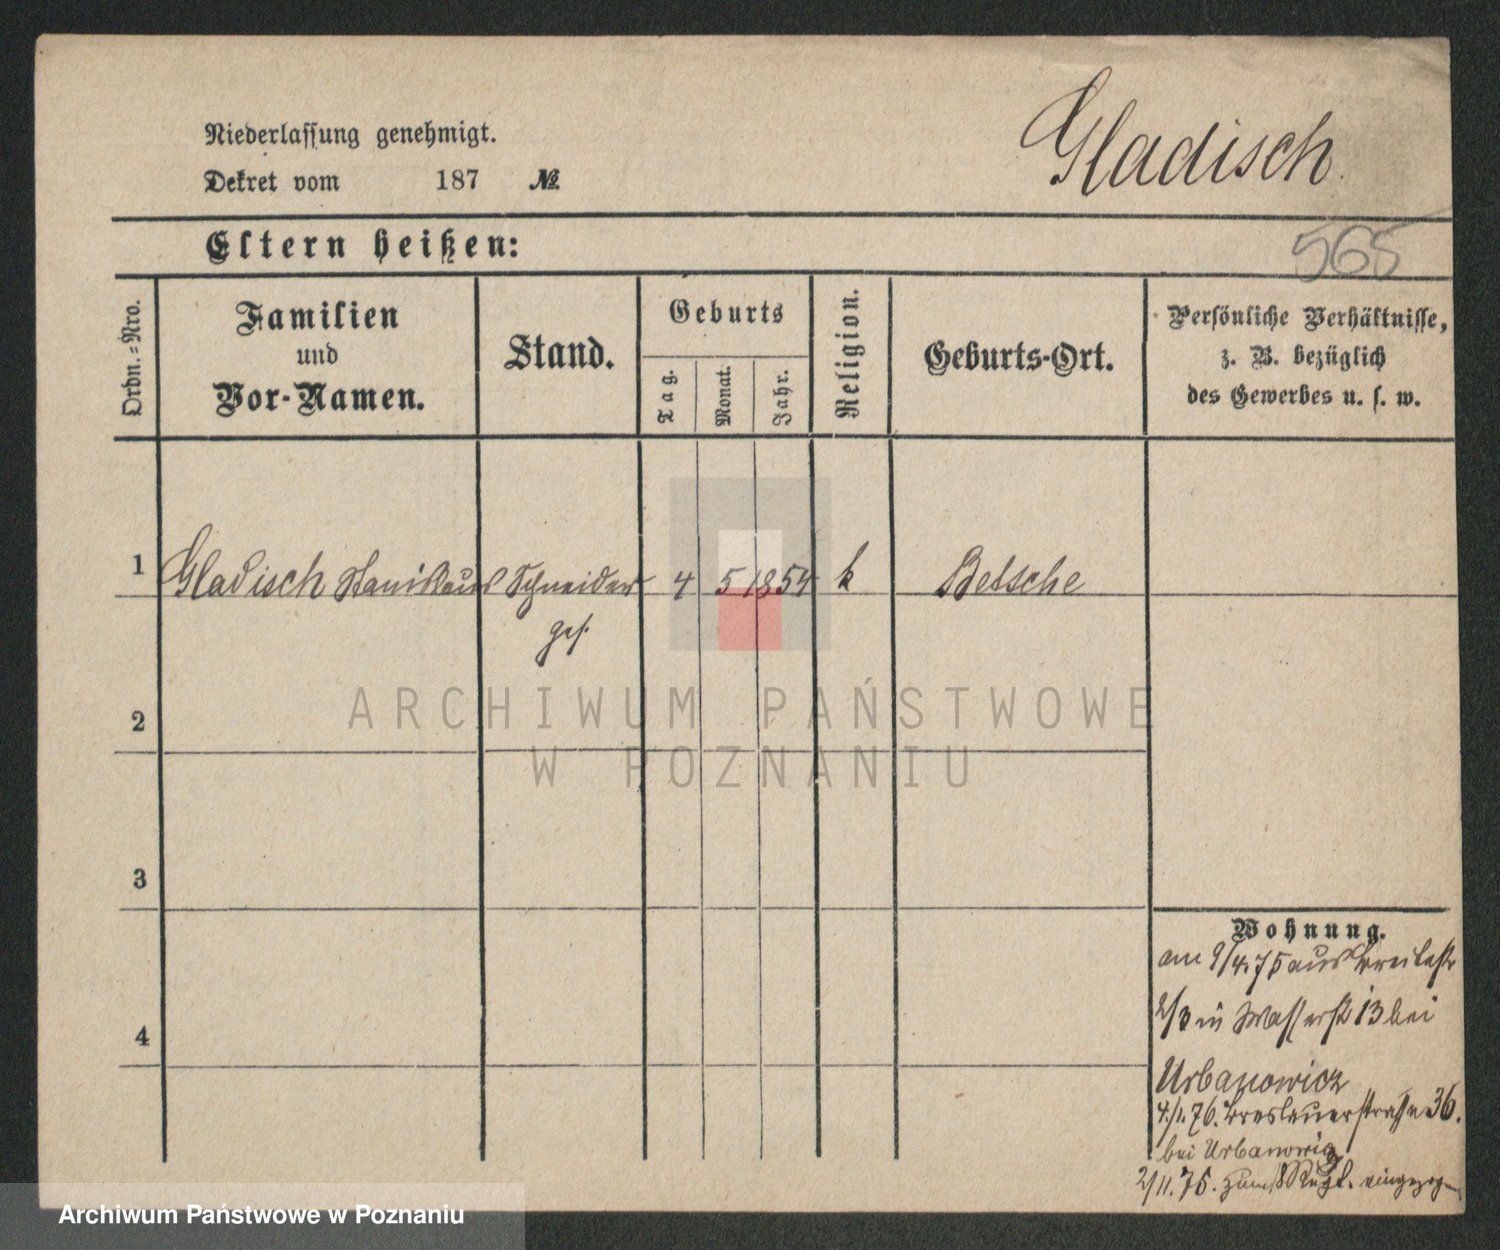 Gladisch.
Niederlassung genehmigt.
Dekret vom 187 №
Eltern heißen:
565
Ordn.=Nro.
Familien
und
Vor-Namen.
Stand.
Geburts
Tag.
Monat.
Jahr.
Religion.
Geburts-Ort.
Persönliche Verhältnisse,
z. B. bezüglich
des Gewerbes u. s. w.
1 Gladisch Stanislaus Schneider 4 5 1854 k Betsche
ges.
2
3
4
Wohnung.
am 9/4. 75 aus Breitestr
in Wasserstr 13 bei
Urbanowicz
4./1. 76. Breslauerstrasse 36.
bei Urbanowicz
2/11. 75. zum eingezogen
ARCHIWUM PAŃSTWOWE
W POZNANIU
Archiwum Państwowe w Poznaniu